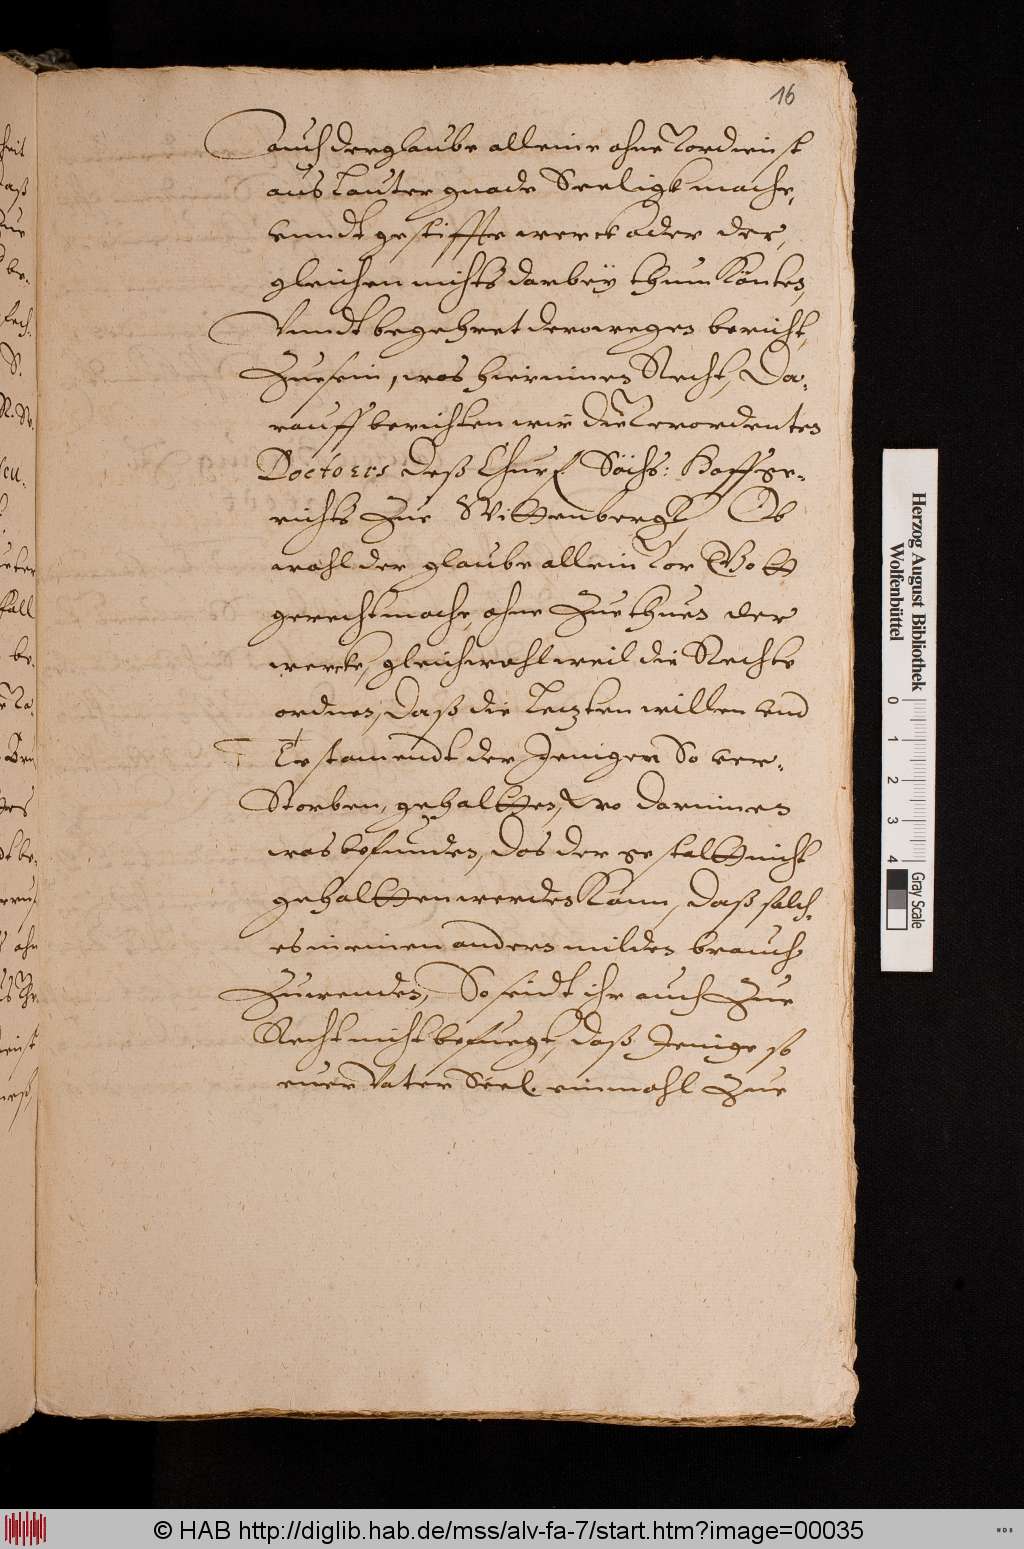 16
auch der glaube alleine ohne Verdienst
aus lauter gnade Seeligk mache,
vnndt gestiffte werck oder der,
gleichen nichts darbey thun Könten,
Vnndt begehret derowegen bericht,
Zuesein, was hierinnen Recht, Da-
rauff berichten wir die Verordenten
Doctores deß Churf. Sächs: Hoffge-
richts Zue Wittenbergk, Ob
wohl der glaube allein Vor Gott
gerecht mache ohne Zuethuen der
wercke, gleichwohl weil die Rechte
ordnen, Daß die Letzten willen vnd
Testamendt der Jenigen So ver-
Storben, gehaltten, Wo darinnen
was befunden, das der gestaltt nicht
gehaltten werden Kann, Daß solch-
es in einen andern milden brauch
Zuwenden, So seidt ihr auch Zue
Recht nicht befuegt, daß Jenige so
euer Vater Seel. einmahl Zue
Herzog August Bibliothek
Wolfenbüttel
0 1 2 3 4
Gray Scale
© HAB http://diglib.hab.de/mss/alv-fa-7/start.htm?image=00035